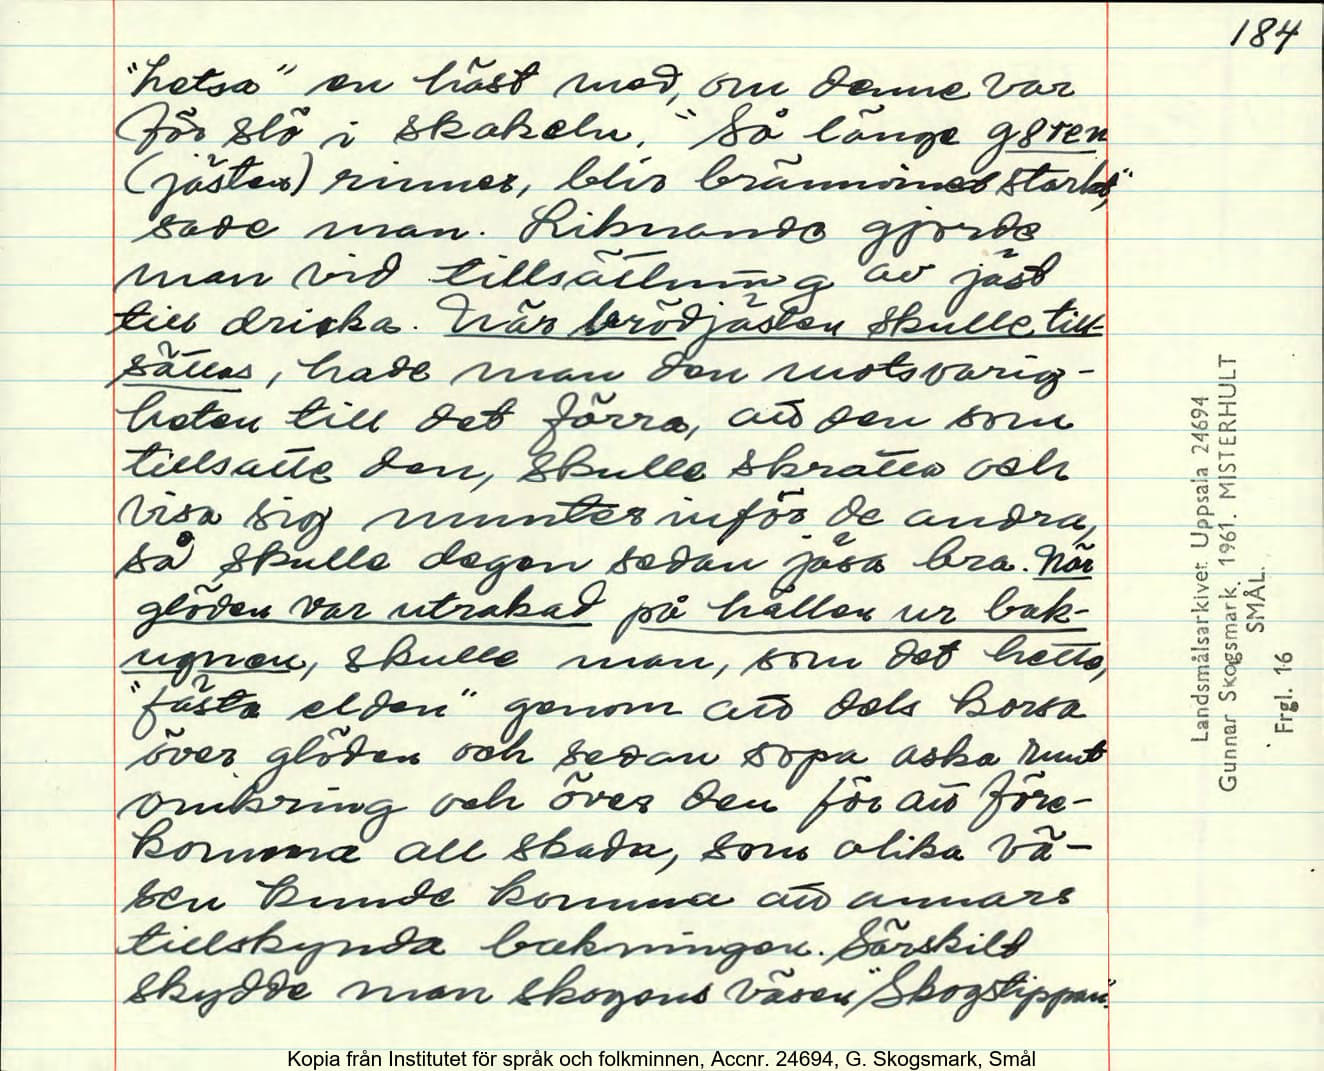 184
"hetsa" en häst med, om denne var
för slö i skakeln. "Så länge gären
(jästen) rinner, blir brännvinet starkt",
sade man. Liknande gjorde
man vid tillsättning av jäst
till dricka. När brödjästen skulle till-
sättas, hade man den motsvarig-
heten till det förra, att den som
tillsatte den, skulle skratta och
visa sig munter inför de andra,
så skulle degen sedan jäsa bra. När
glöden var utrakad på hällen ur bak-
ugnen, skulle man, som det hette,
"fästa elden" genom att dels korsa
över glöden och sedan sopa aska runt
omkring och över den för att före-
komma all skada, som olika vä-
sen kunde komma att annars
tillskynda bakningen. Särskilt
skydde man skogens väsen "Skogstippan".
Landsmålsarkivet Uppsala 24694
Gunnar Skogsmark. 1961. MISTERHULT
SMÅL.
Frgl. 16
Kopia från Institutet för språk och folkminnen, Accnr. 24694, G. Skogsmark, Smål